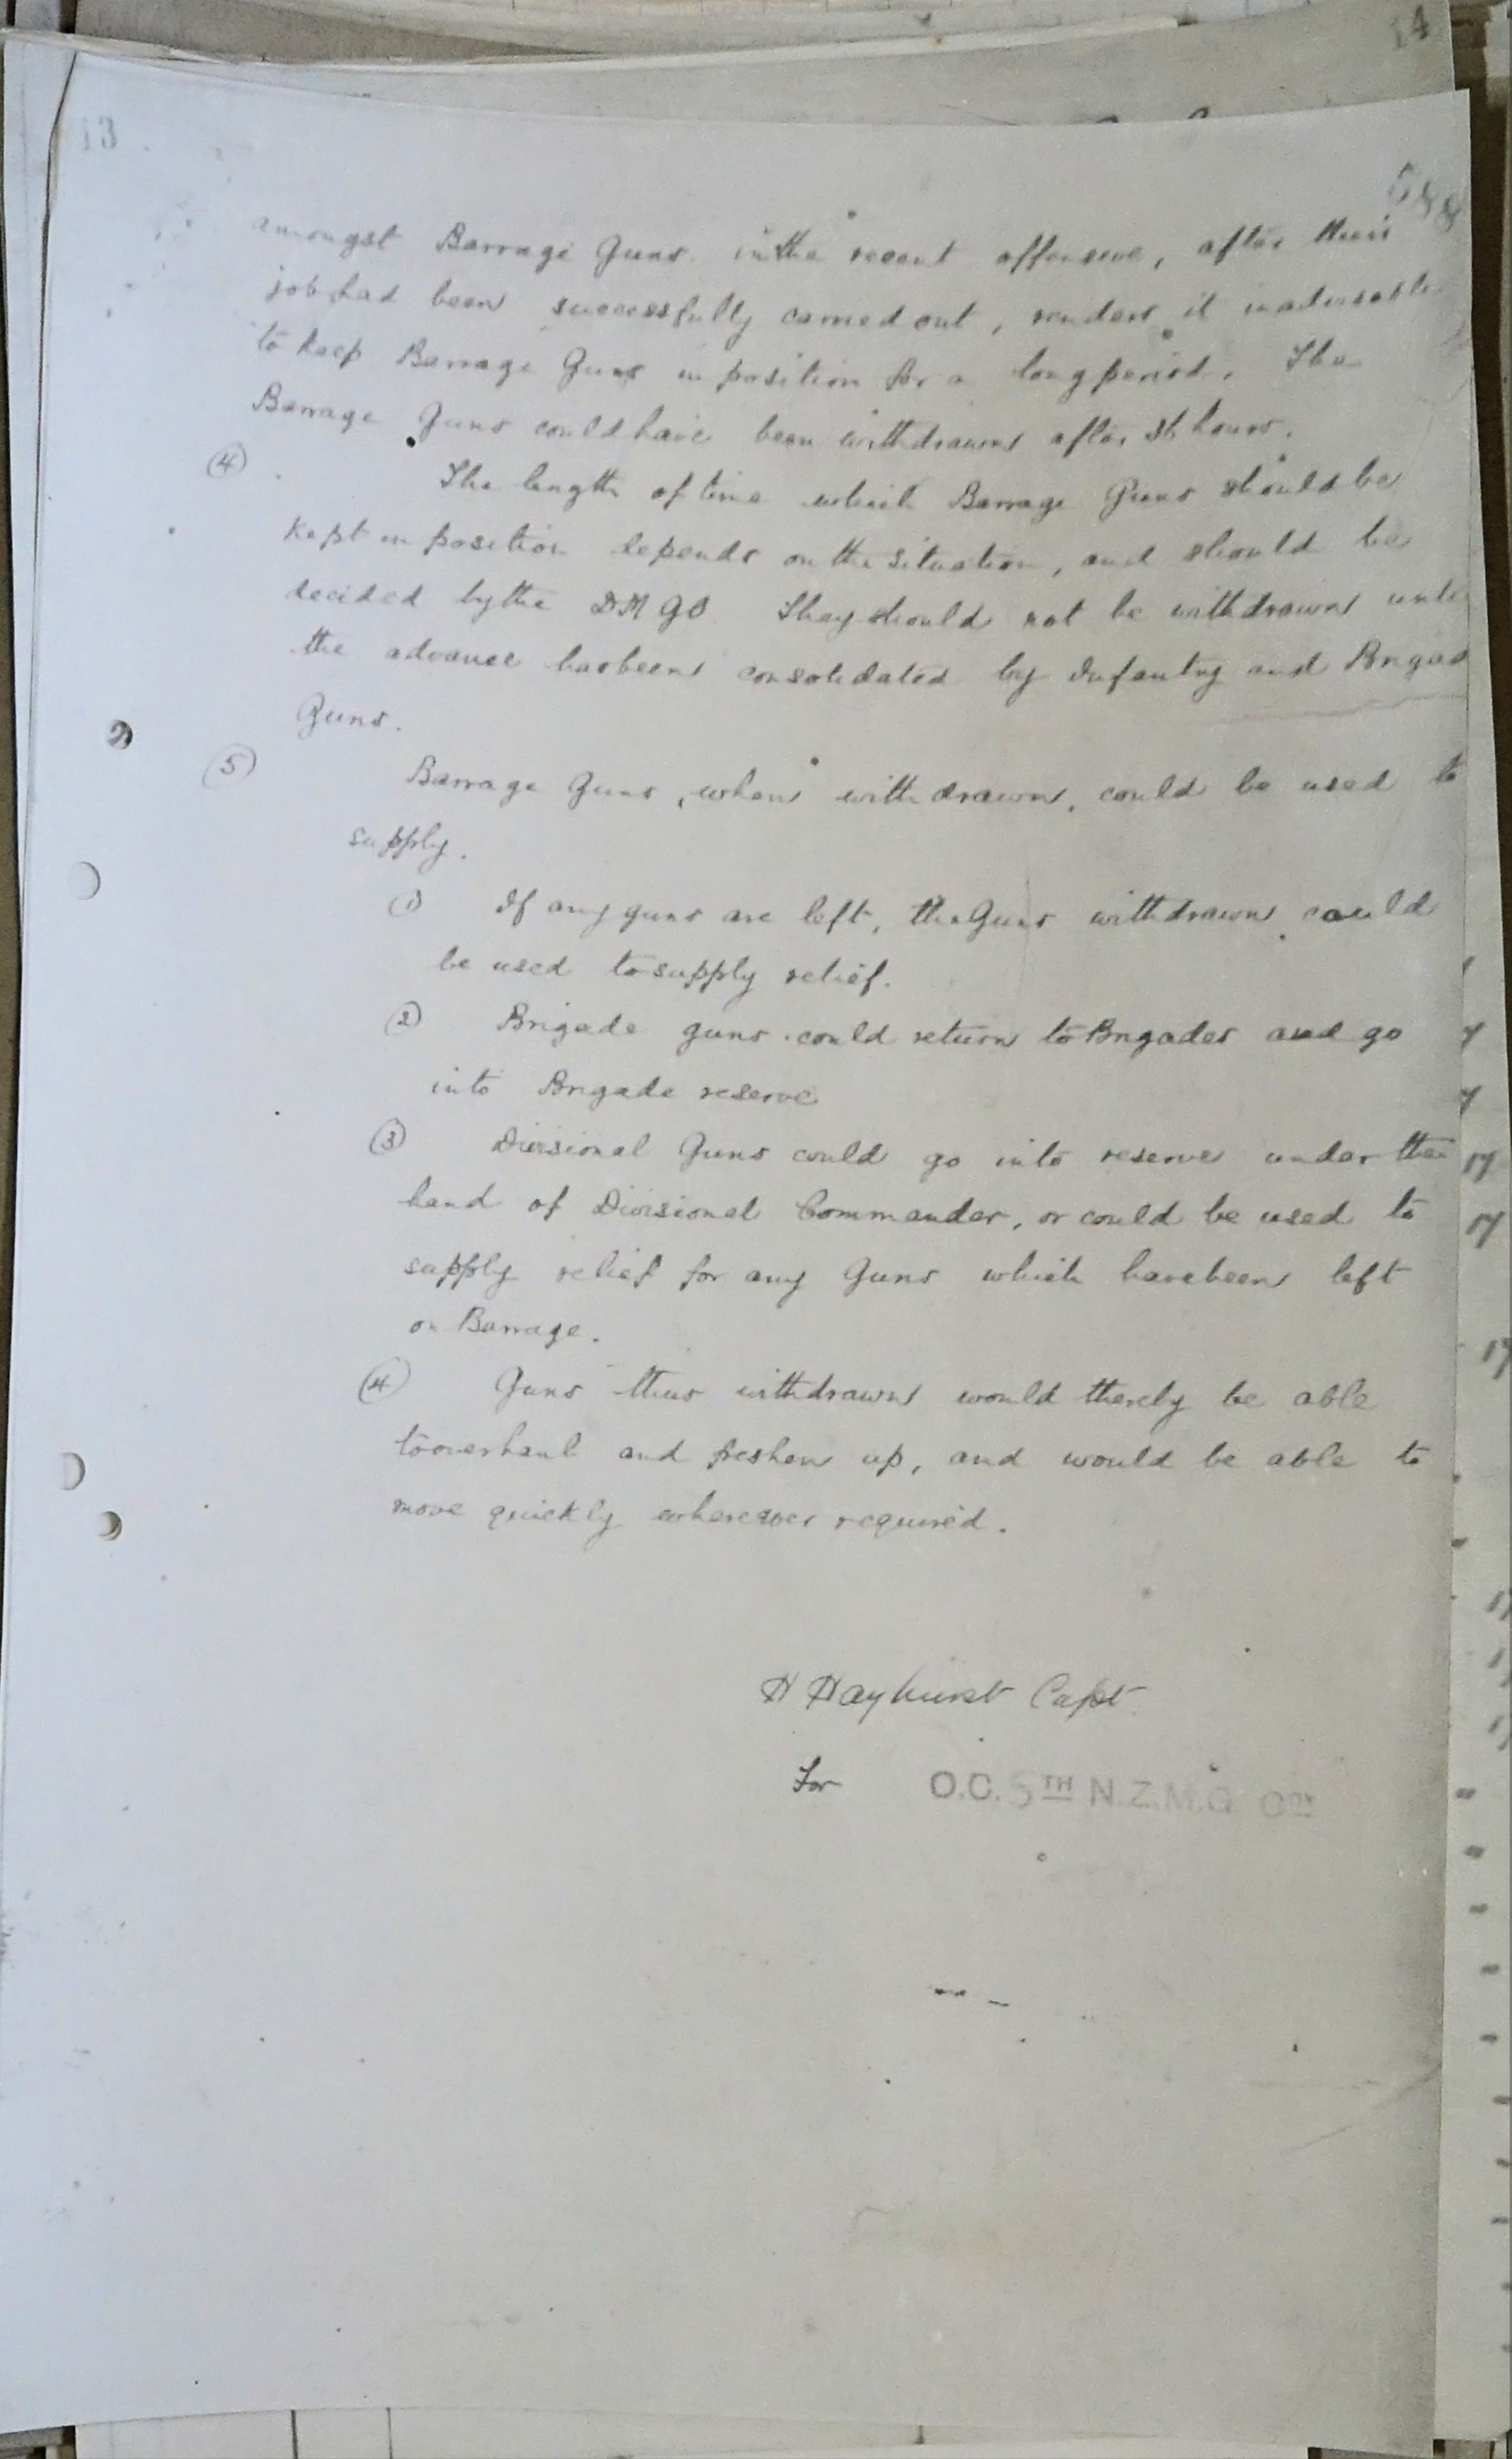 14
13
588
amongst Barrage Guns in the recent offensive, after their
job had been successfully carried out, renders it inadvisable
to keep Barrage Guns in position for a long period. The
Barrage Guns could have been withdrawn after 36 hours.
(4)
The length of time which Barrage Guns should be
kept in position depends on the situation, and should be
decided by the DMGO They should not be withdrawn until
the advance has been consolidated by Infantry and Brigad
Guns.
(5)
Barrage Guns, when withdrawn, could be used to
supply.
(1) If any guns are left, the Guns withdrawn could
be used to supply relief.
(2) Brigade guns could return to Brigades and go
into Brigade reserve
(3) Divisional Guns could go into reserve under the
hand of Divisional Commander, or could be used to
supply relief for any Guns which have been left
on Barrage.
(4) Guns thus withdrawn would thereby be able
to overhaul and freshen up, and would be able to
move quickly wherever required.
H Hayhurst Capt.
For O.C. 5TH N.Z.M.G COY